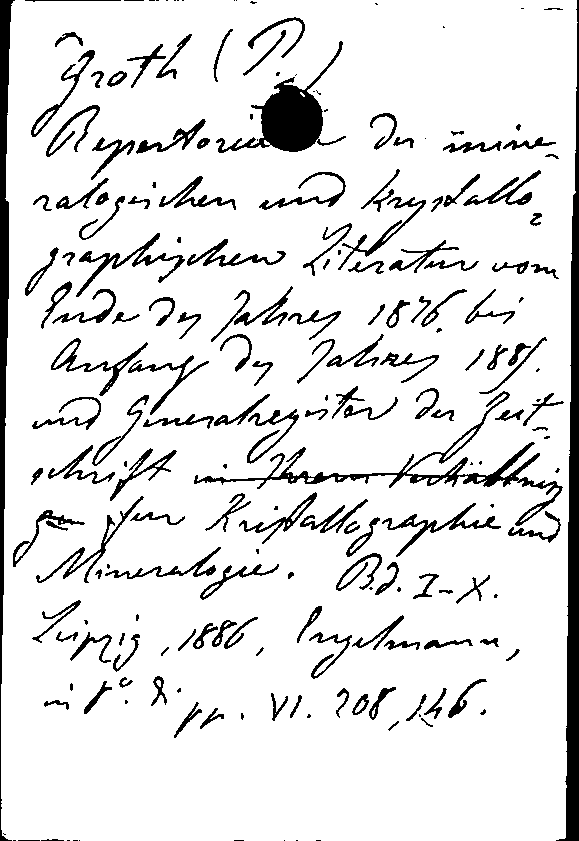 Groth (P.)
Repertorium der mine-
ralogischen und Krystallo-
graphischen Literatur vom
Ende des Jahres 1876 bis
Anfang des Jahres 1885.
und Generalregister der Zeit-
schrift in Ihrem Verhältniss
zur für Kristallographie und
Mineralogie. Bd. I-X.
Leipzig, 1886, Engelmann,
in 8°. pp. VI. 208, 146.